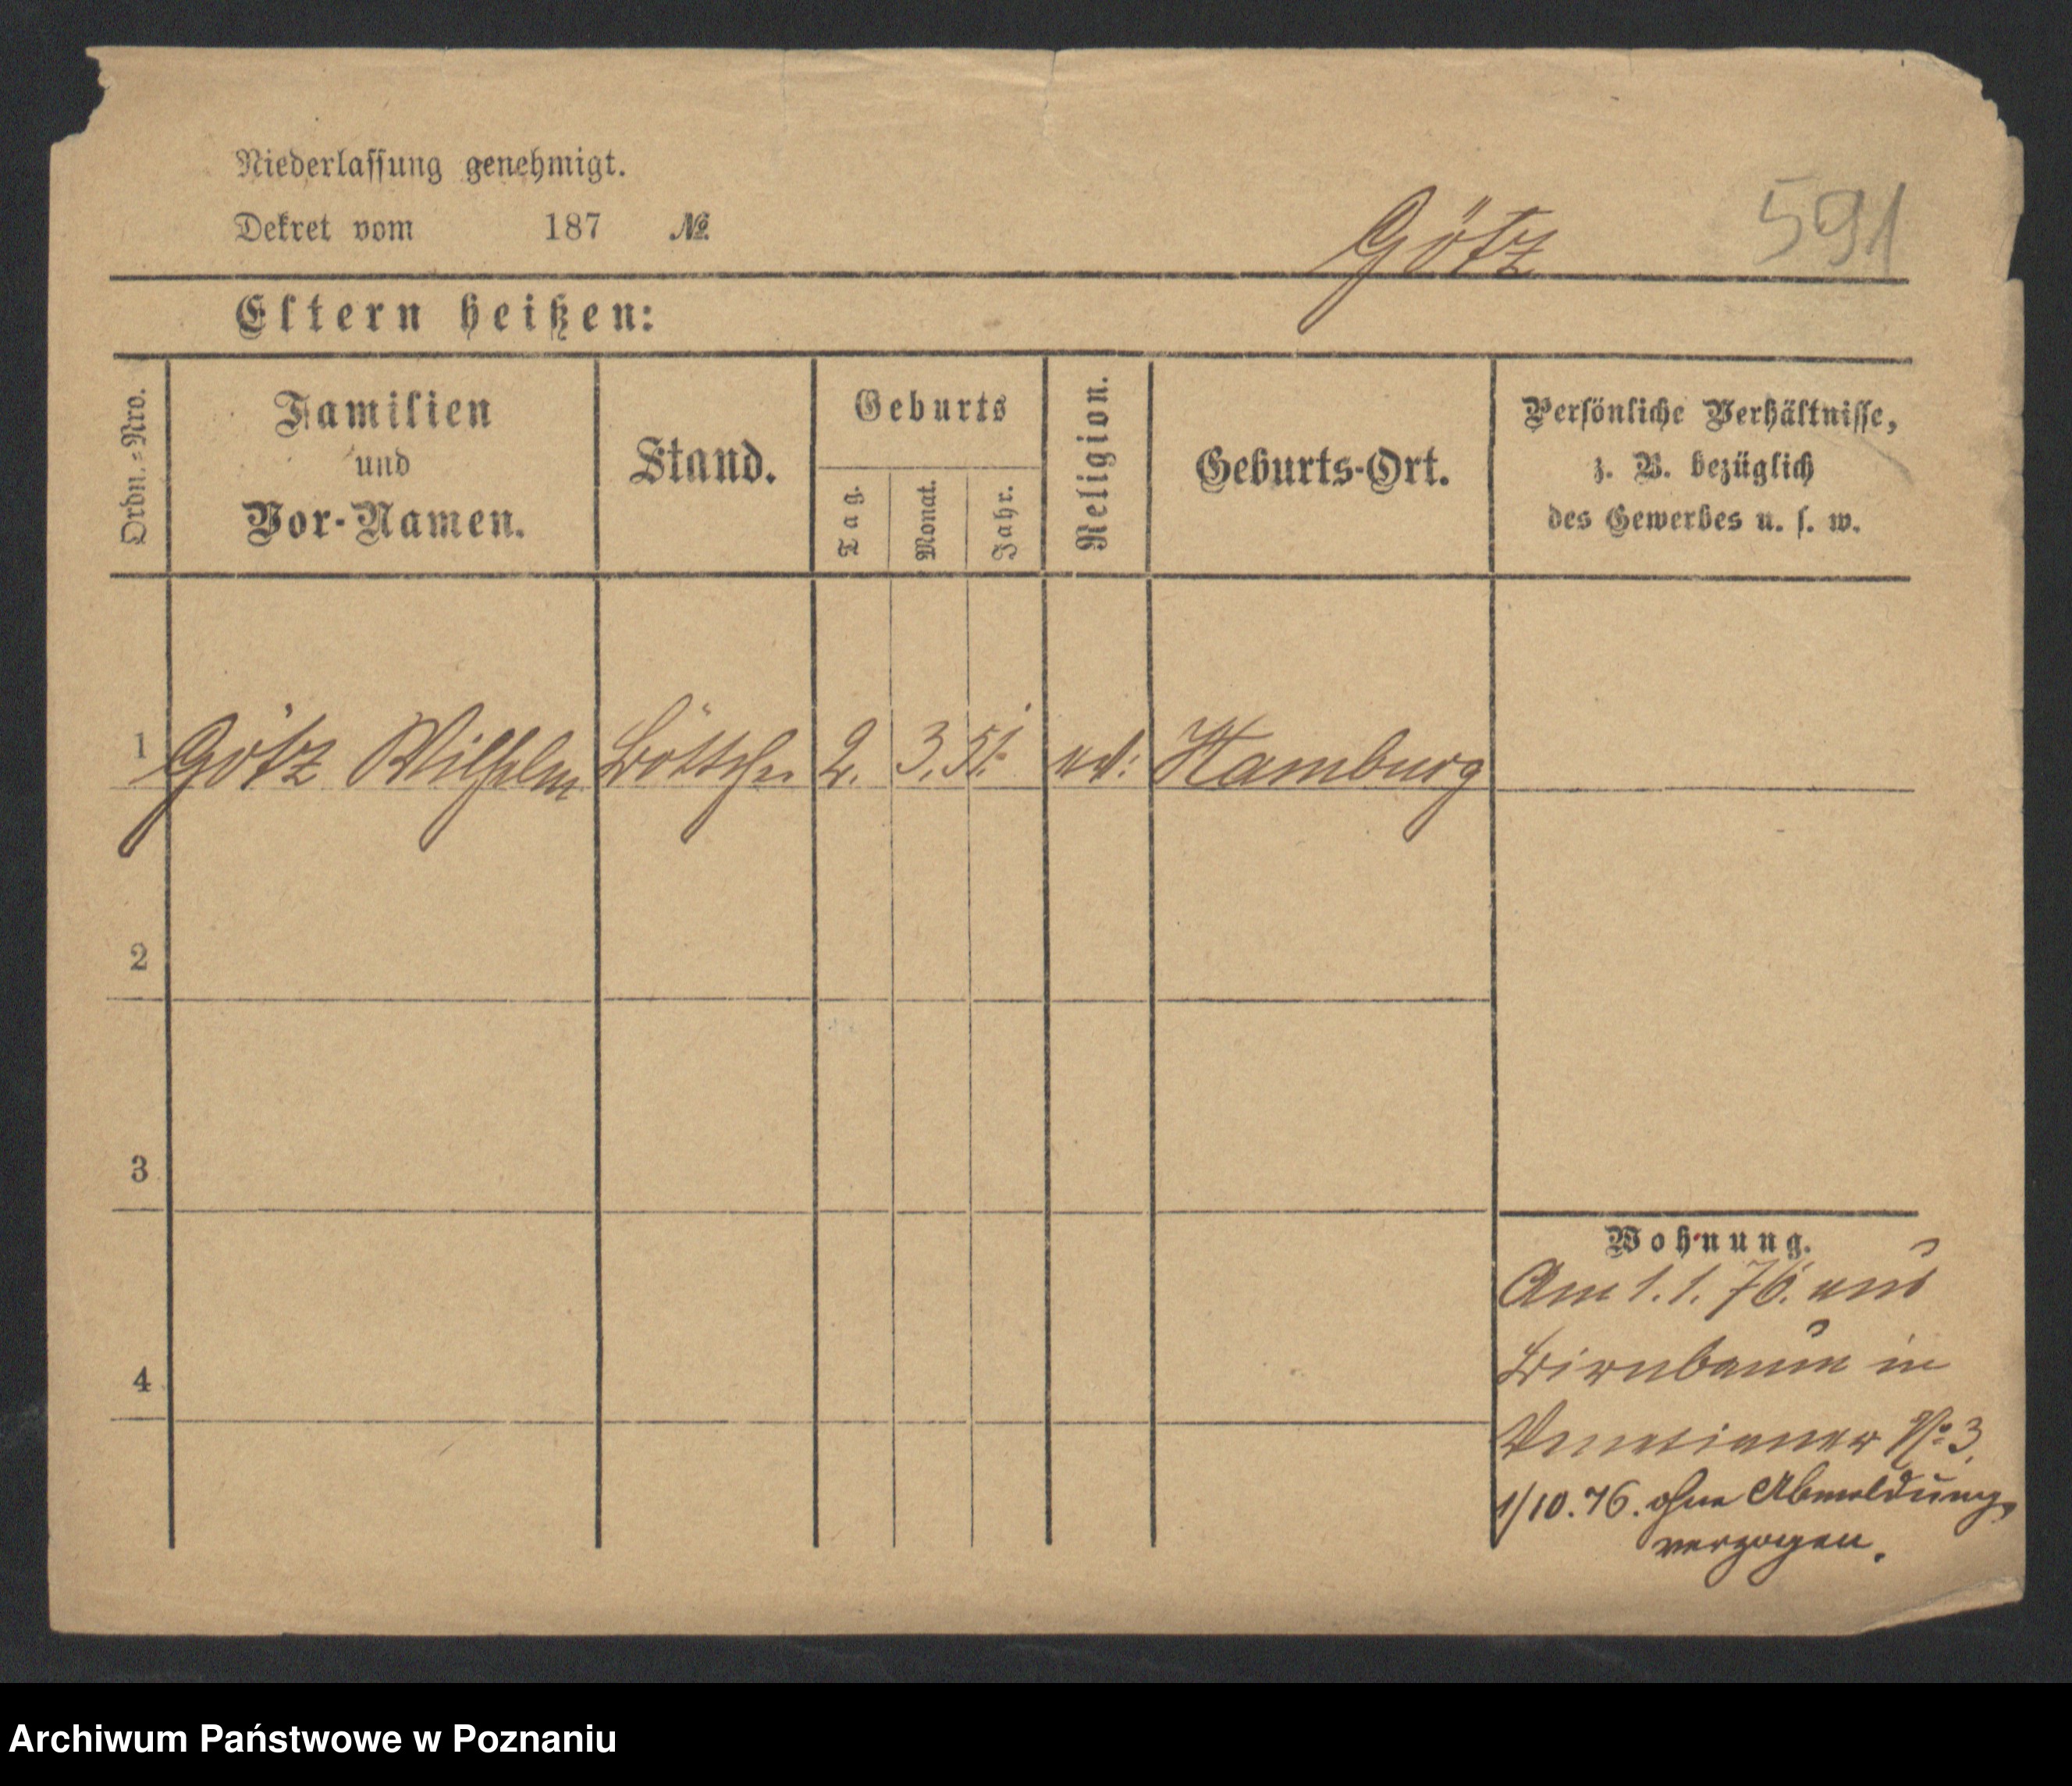 Niederlassung genehmigt.
Dekret vom 187 №
Götz
591
Eltern heißen:
Ordn.-Nro.
Familien und Vor-Namen.
Stand.
Geburts
Tag.
Monat.
Jahr.
Religion.
Geburts-Ort.
Persönliche Verhältnisse,
z. B. bezüglich
des Gewerbes u. s. w.
1 Götz Wilhelm Böttcher 2. 3. 51. Hamburg
2
3
4
Wohnung.
Am 1.1.76. aus
Birnbaum in
Venetianer No 3.
1/10.76. ohne Abmeldung
verzogen.
Archiwum Państwowe w Poznaniu